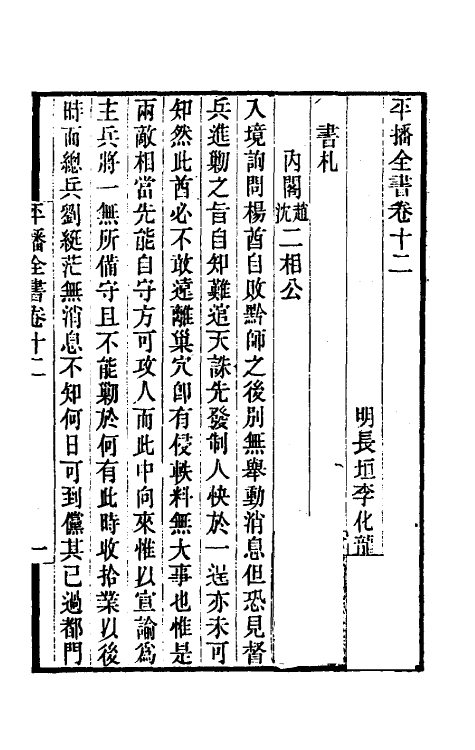 平播全書卷十二
明長垣李化龍
書札
內閣趙沈二相公
入境詢問楊酋自敗黔師之後別無舉動消息但恐見督
兵進勦之旨自知難逭天誅先發制人快於一逞亦未可
知然此酋必不敢遠離巢穴卽有侵軼料無大事也惟是
兩敵相當先能自守方可攻人而此中向來惟以宣諭為
主兵將一無所備守且不能勦於何有此時收拾業以後
時而總兵劉綎茫無消息不知何日可到儻其已過都門
平播全書卷十二
一